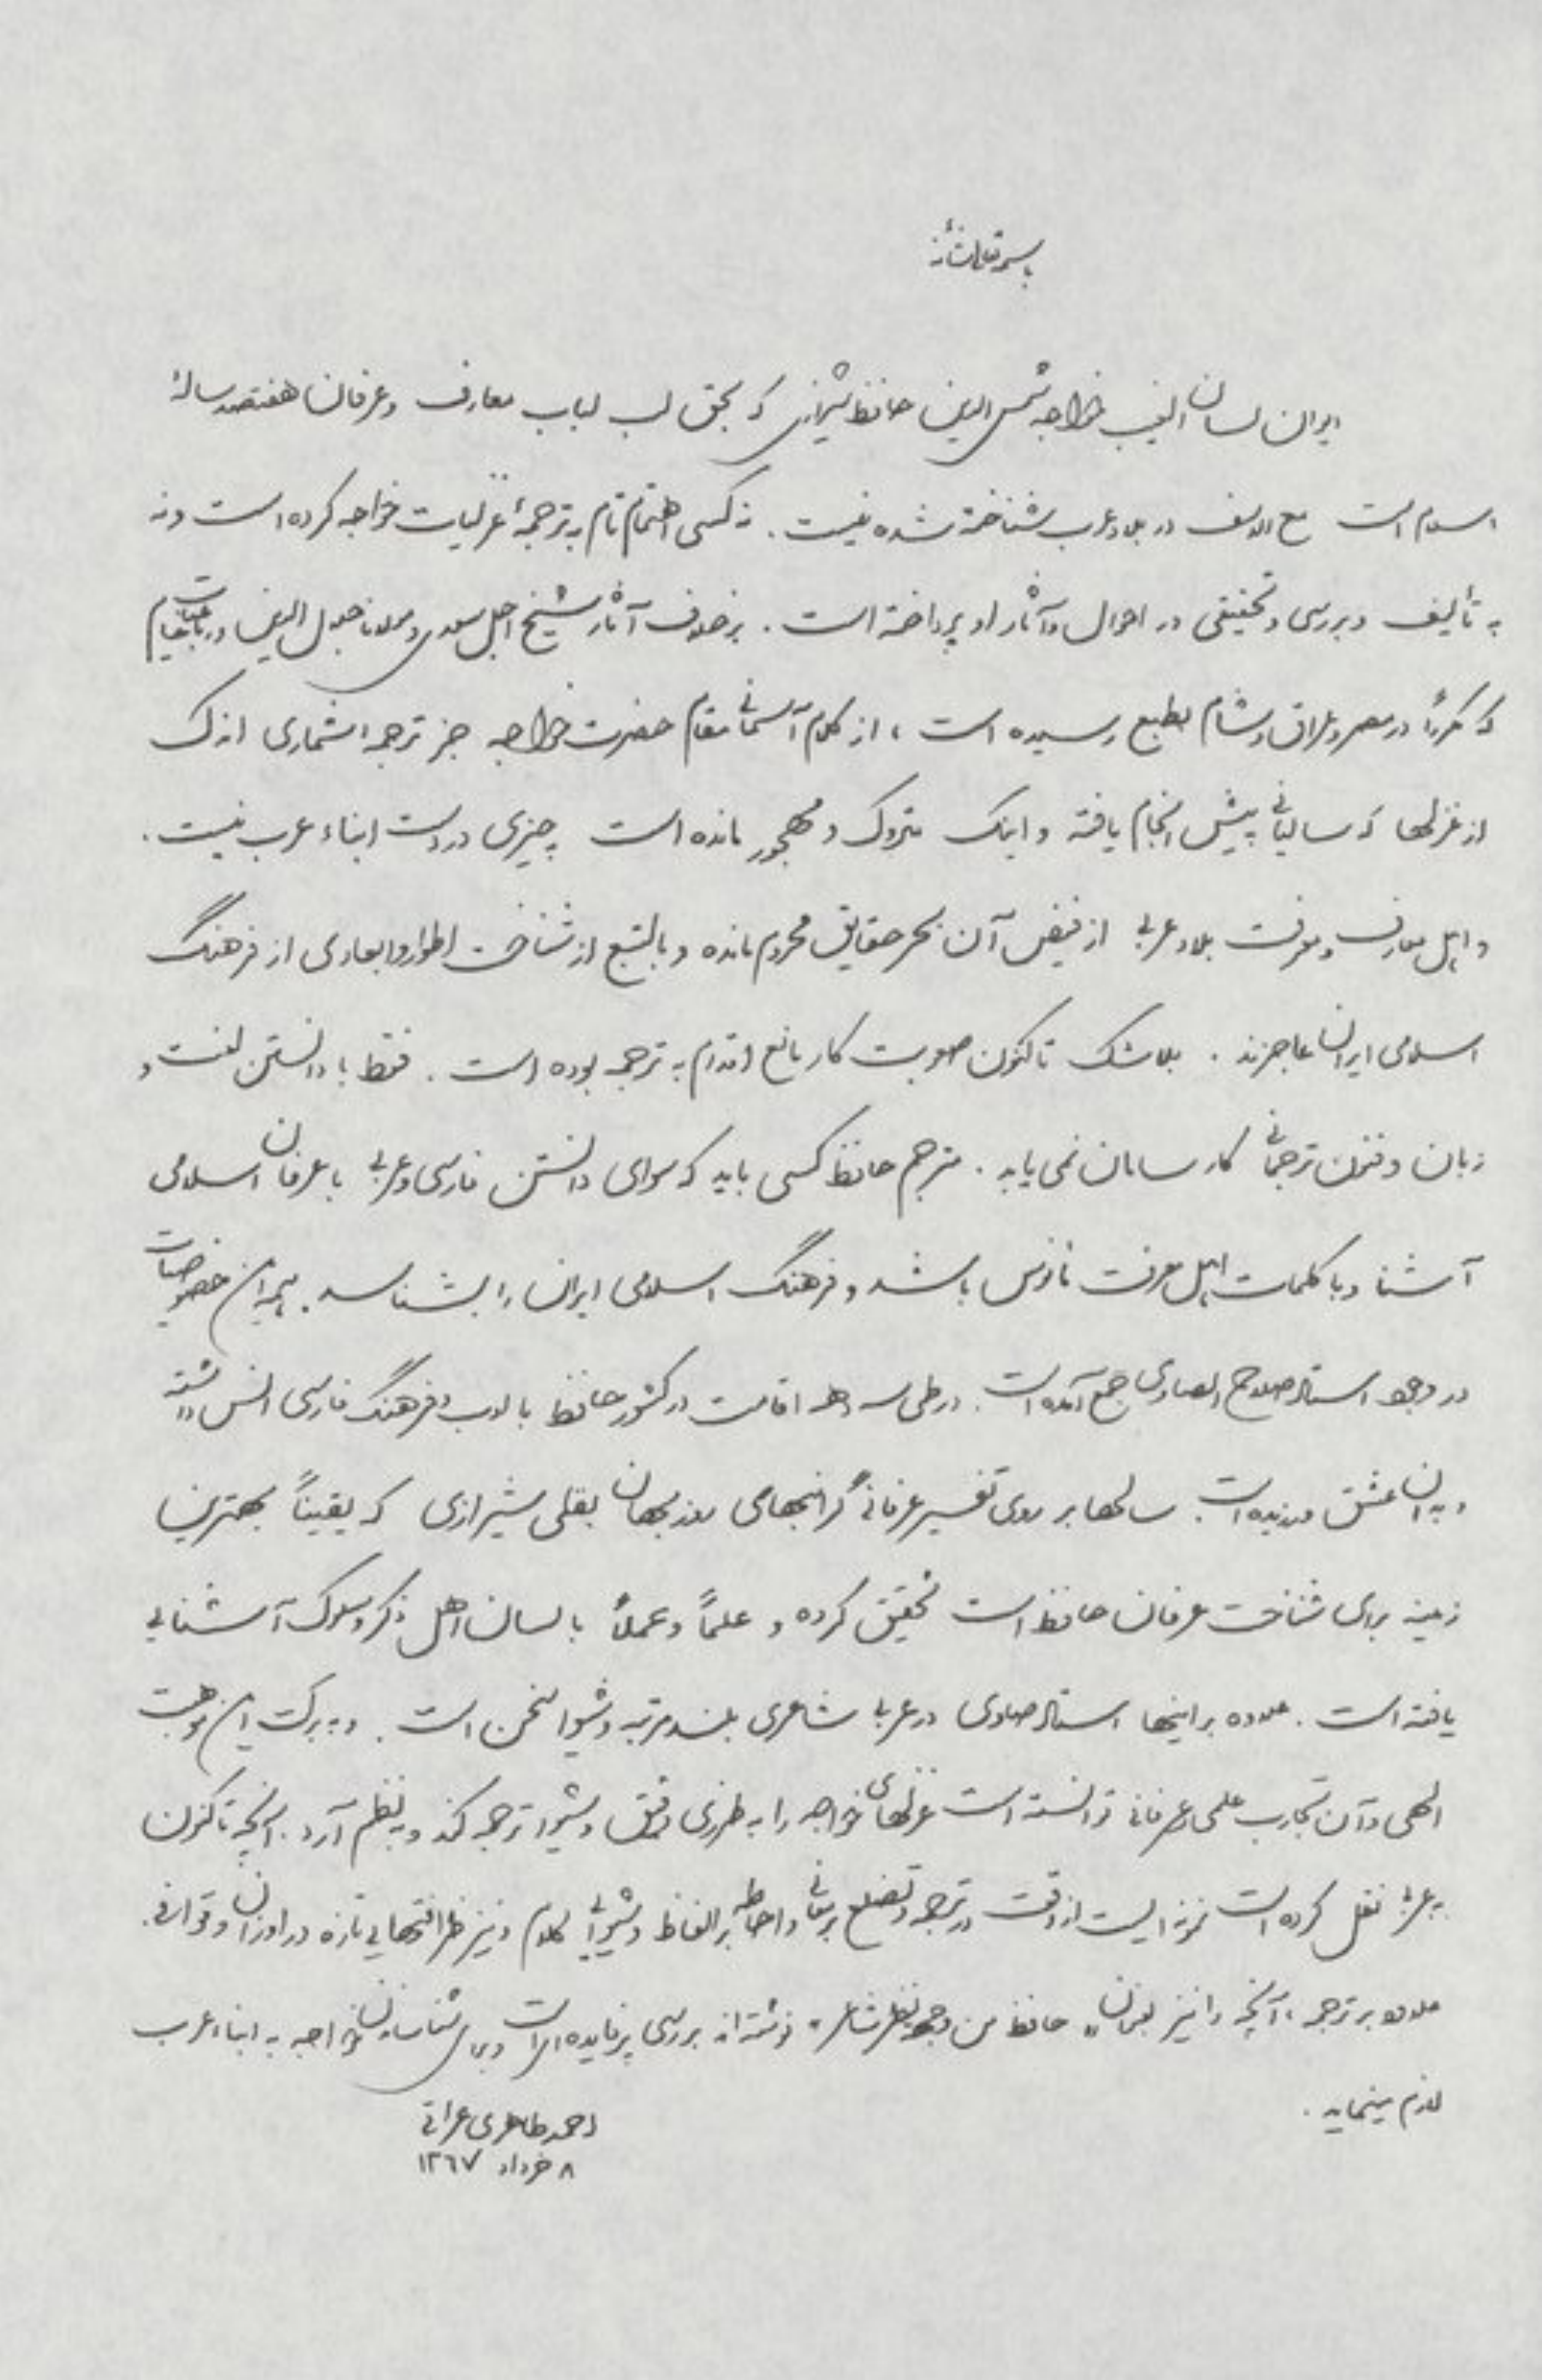 باسمه تعالی شأنه
دیوان لسان الغیب خواجه شمس الدین حافظ شیرازی که بحق لب لباب معارف و عرفان هفتصد سالهٔ
اسلام است مع الاسف در بلاد عرب شناخته شده نیست. نه کسی اهتمام تام به ترجمهٔ غزلیات خواجه کرده است و نه
به تألیف و بررسی و تحقیقی در احوال و آثار او پرداخته است. برخلاف آثار شیخ اجل سعدی و مولانا جلال الدین و رباعیات خیام
که مکرراً در مصر و عراق و شام بطبع رسیده است، از کلام آسمانی مقام حضرت خواجه جز ترجمه شماری اندک
از غزلها که سالیانی پیش انجام یافته و اینک متروک و مهجور مانده است چیزی در دست ابناء عرب نیست.
و اهل معارف و معرفت بلاد عربی از فیض آن بحر حقایق محروم مانده و بالتبع از شناخت اطوار و ابعادی از فرهنگ
اسلامی ایران عاجزند. بلاشک تاکنون صعوبت کار مانع اقدام به ترجمه بوده است. فقط با دانستن لغت و
زبان و فنون ترجمانی کار سامان نمی یابد. مترجم حافظ کسی باید که سوای دانستن فارسی و عربی با عرفان اسلامی
آشنا و با کلمات اهل معرفت مأنوس باشد و فرهنگ اسلامی ایران را بشناسد. همه این خصوصیات
در وجود استاد صلاح الصاوی جمع آمده است. در طی سه دهه اقامت در کشور حافظ با ادب و فرهنگ فارسی انس داشته
و به آن عشق ورزیده است. سالها بر روی تفسیر عرفانی گرانبهای روزبهان بقلی شیرازی که یقیناً بهترین
زمینه برای شناخت عرفان حافظ است تحقیق کرده و علماً و عملاً با لسان اهل ذکر و سلوک آشنایی
یافته است. علاوه بر اینها استاد صاوی در عربی شاعری بلند مرتبه و شیوا سخن است. و به برکت این موهبت
الهی و آن تجارب علمی و عرفانی توانسته است غزلهای خواجه را به طرزی دقیق و شیوا ترجمه کند و به نظم آرد. آنچه تاکنون
به عربی نقل کرده است نمونه ایست از دقت در ترجمه و تضلع بر معانی و احاطه بر الفاظ و شیوایی کلام و نیز ظرافتهایی تازه در اوزان و قوافی.
علاوه بر ترجمه، آنچه را نیز بعنوان «حافظ من وجهة نظر شاعر» نوشته اند بررسی پرفایده ای است و برای شناساندن خواجه به ابناء عرب
لازم مینماید.
احمد طاهری عراقی
۸ خرداد ۱۳۶۷